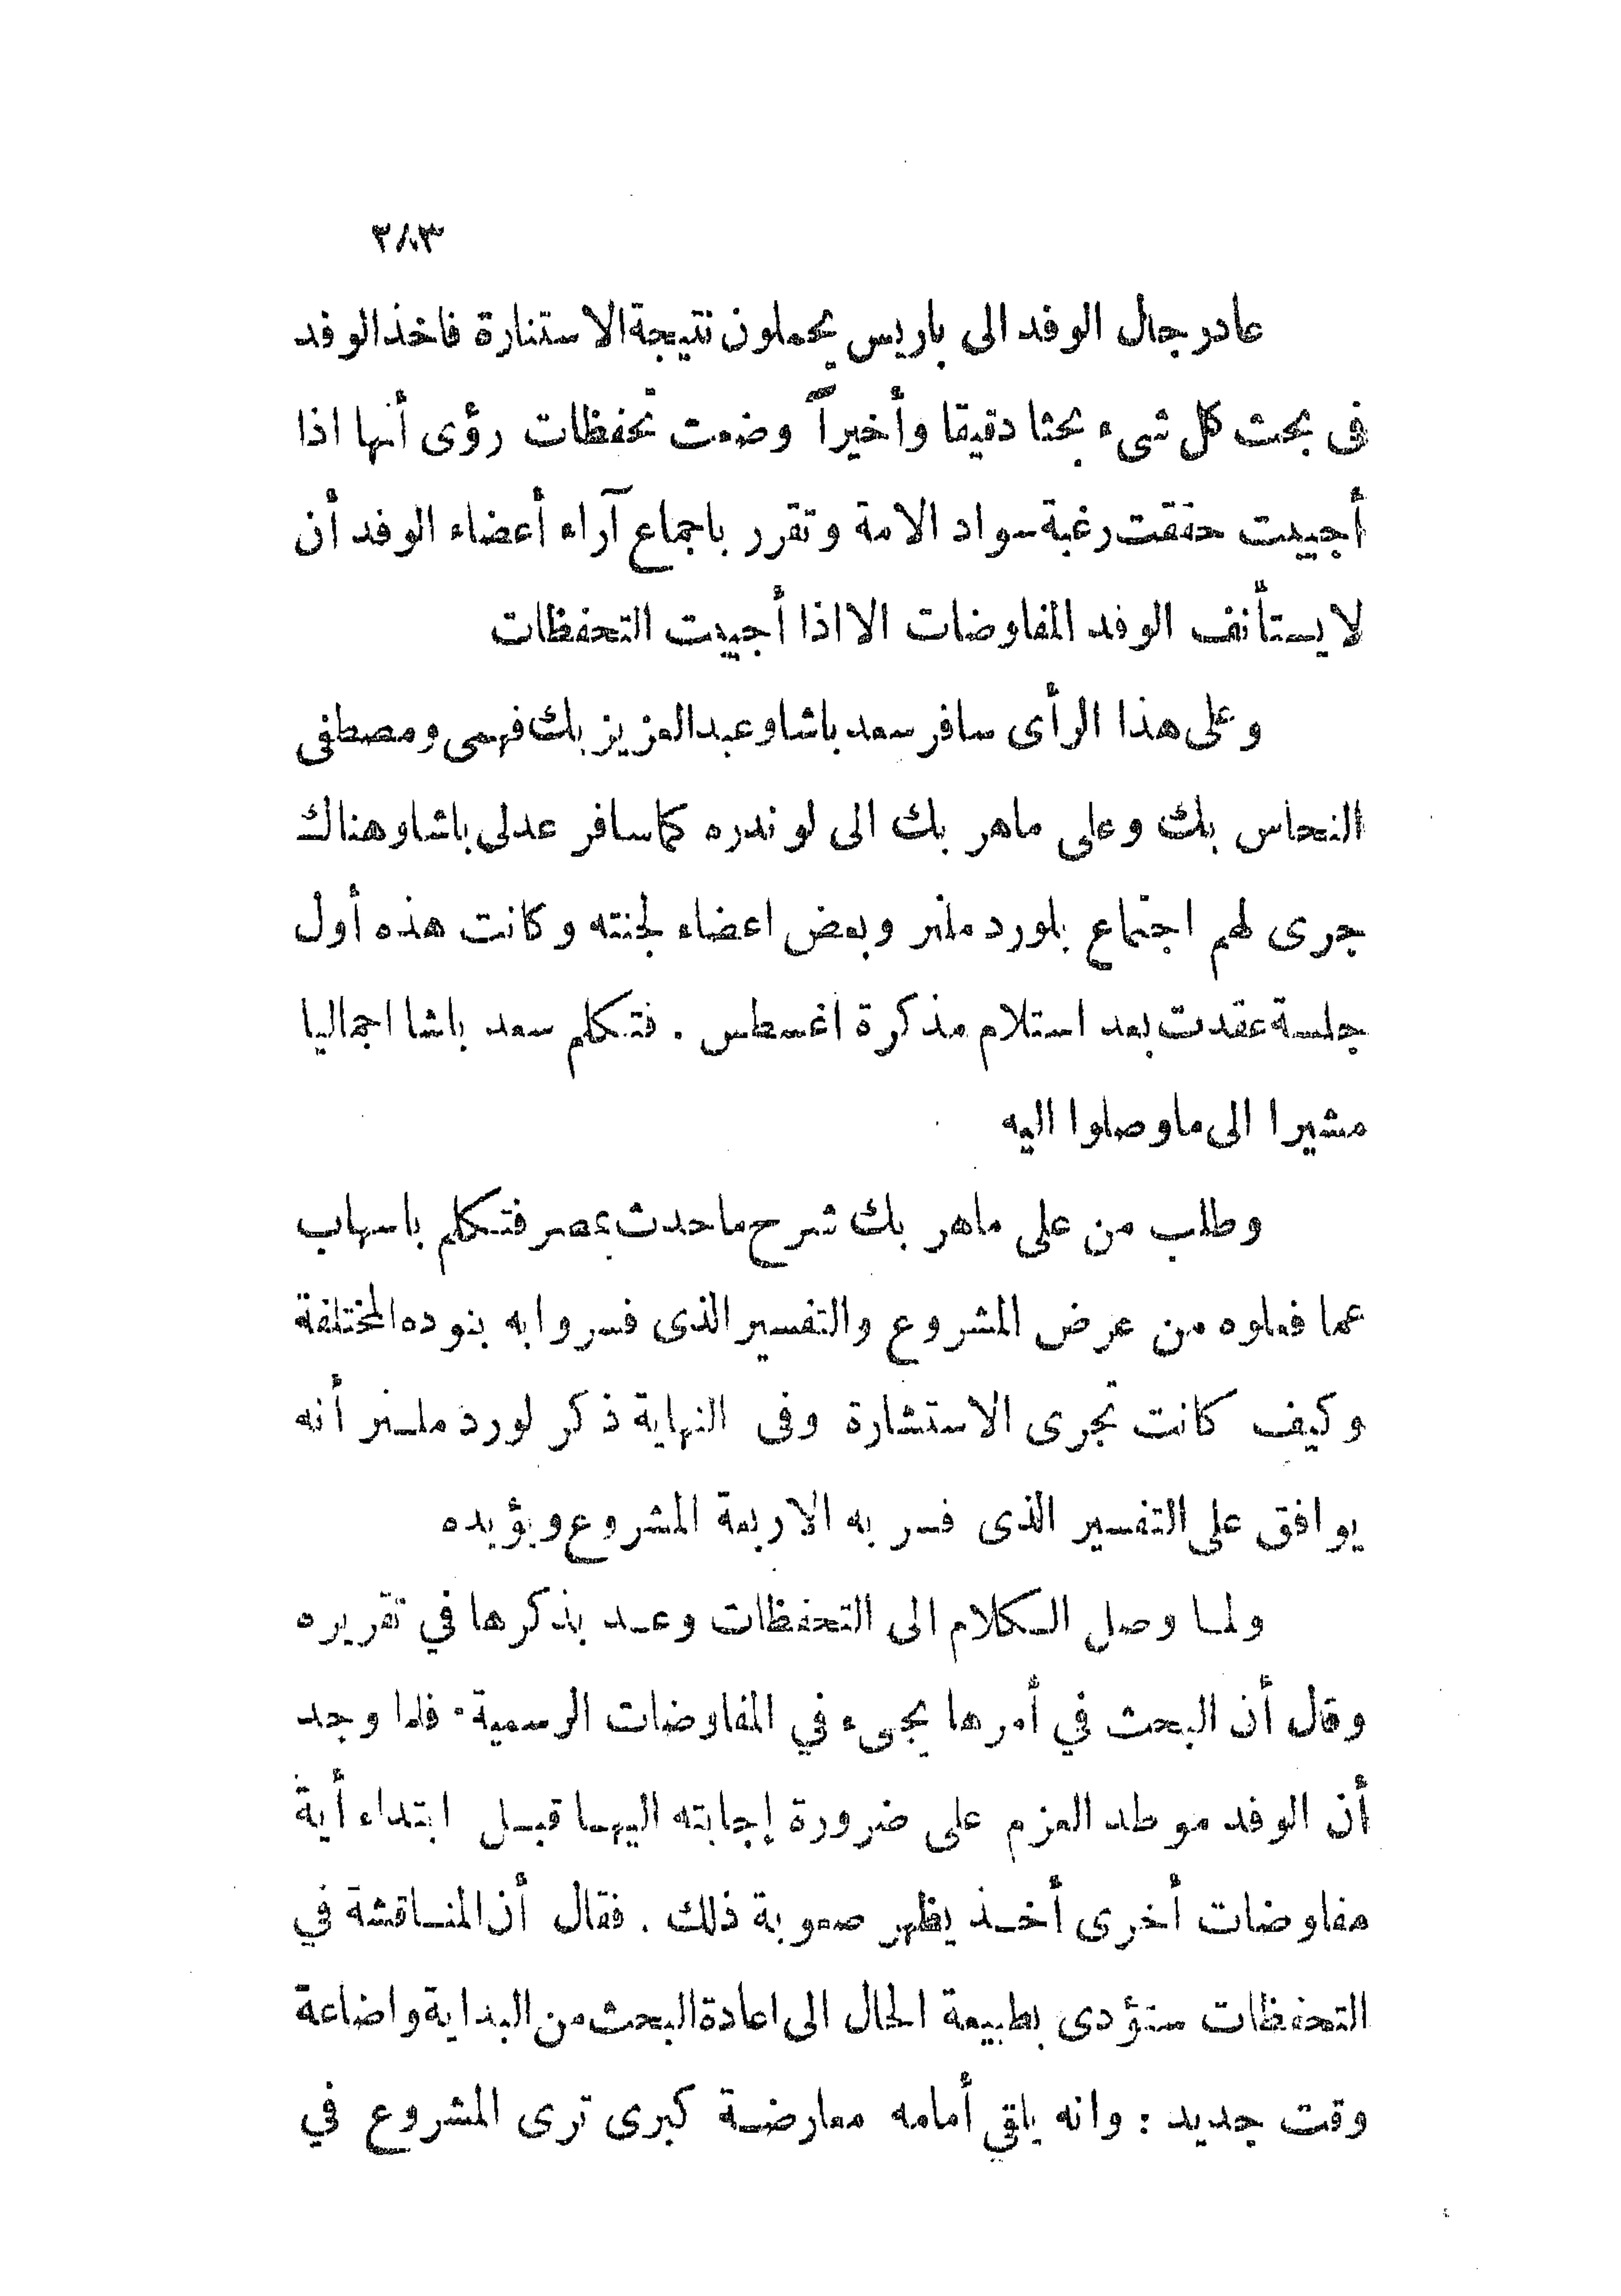 ٣٨٣
عاد رجال الوفد الى باريس يحملون نتيجة الاستنارة فاخذ الوفد
فى بحث كل شىء بحثا دقيقا وأخيراً وضعت تحفظات رؤى أنها اذا
أجيبت حققت رغبة سواد الامة وتقرر باجماع آراء أعضاء الوفد أن
لا يستأنف الوفد المفاوضات الا اذا أجيبت التحفظات
وعلى هذا الرأى سافر سعد باشا وعبد العزيز بك فهمى ومصطفى
النحاس بك وعلى ماهر بك الى لوندره كما سافر عدلى باشا وهناك
جرى لهم اجتماع بلورد ملنر وبعض اعضاء لجنته وكانت هذه أول
جلسة عقدت بعد استلام مذكرة اغسطس . فتكلم سعد باشا اجماليا
مشيرا الى ما وصلوا اليه
وطلب من على ماهر بك شرح ما حدث بمصر فتكلم باسهاب
عما فعلوه من عرض المشروع والتفسير الذى فسروا به بنوده المختلفة
وكيف كانت تجرى الاستشارة وفى النهاية ذكر لورد ملنر أنه
يوافق على التفسير الذى فسر به الاربعة المشروع ويؤيده
ولما وصل الكلام الى التحفظات وعد بذكرها في تقريره
وقال أن البحث في أمرها يجىء في المفاوضات الرسمية . فلما وجد
أن الوفد موطد العزم على ضرورة إجابته اليها قبل ابتداء أية
مفاوضات أخرى أخذ يظهر صعوبة ذلك . فقال أن المناقشة في
التحفظات ستؤدى بطبيعة الحال الى اعادة البحث من البداية واضاعة
وقت جديد : وانه يلقي أمامه معارضة كبرى ترى المشروع في